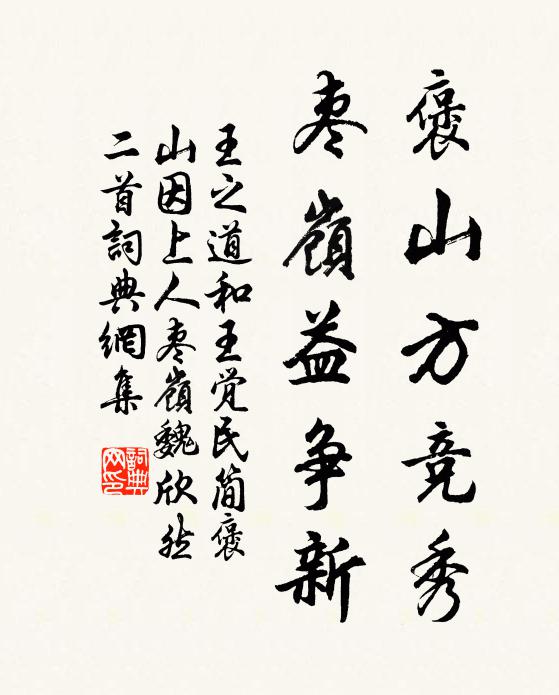 褒山方竞秀
枣嶺益争新
王之道和王觉民简褒
山因上人枣嶺魏欣然
二首詞典網集
詞典网印